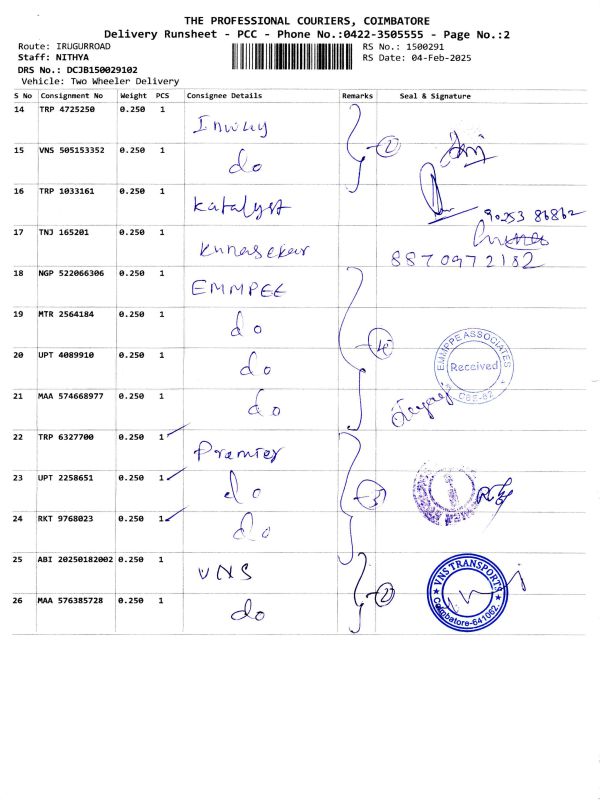 THE PROFESSIONAL COURIERS, COIMBATORE
Delivery Runsheet - PCC - Phone No.:0422-3505555 - Page No.:2
Route: IRUGURROAD
RS No.: 1500291
Staff: NITHYA
RS Date: 04-Feb-2025
DRS No.: DCJB150029102
Vehicle: Two Wheeler Delivery
S No Consignment No Weight PCS Consignee Details Remarks Seal & Signature
14 TRP 4725250 0.250 1 Inway
15 VNS 505153352 0.250 1 do
16 TRP 1033161 0.250 1 Katalyst
90253 86862
17 TNJ 165201 0.250 1 Kunasekar
8870972182
18 NGP 522066306 0.250 1 EMMPEE
19 MTR 2564184 0.250 1 do
20 UPT 4089910 0.250 1 do
EMMPPE ASSOCIATES
Received
CBE-62
21 MAA 574668977 0.250 1 do
22 TRP 6327700 0.250 1 Premier
23 UPT 2258651 0.250 1 do
3
24 RKT 9768023 0.250 1 do
25 ABI 20250182002 0.250 1 VNS
2
VNS TRANSPORTS
Coimbatore-641062.
26 MAA 576385728 0.250 1 do